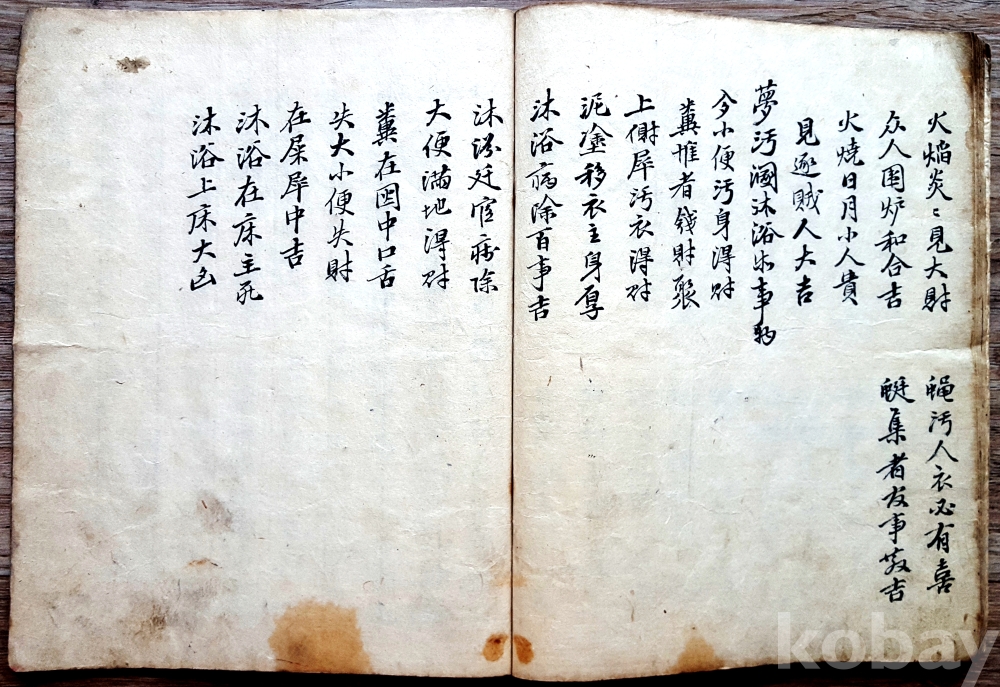 火焰炎〻見大財
众人围炉和合吉
火燒日月小人貴
見逐賊人大吉
夢污溷沐浴出事
小便污身得財
糞堆者錢財聚
上廁屎污衣得財
泥塗移衣主身厚
沐浴病除百事吉
沐浴廷官病除
大便滿地得財
糞在囤中口舌
失大小便失財
在屎屎中吉
沐浴在床主死
沐浴上床大凶
蝇污人衣必有喜
蜓集者友事敬吉
kobay